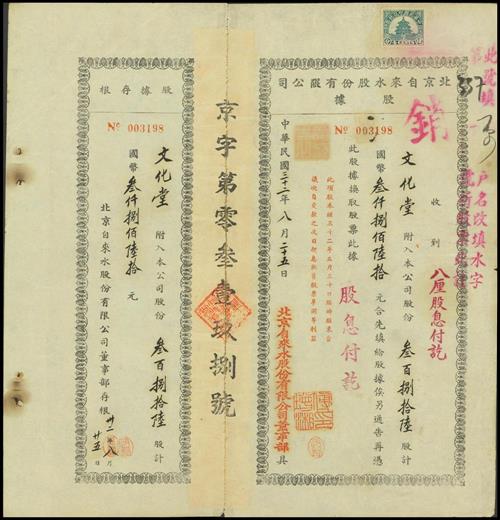 北京自來水股份有限公司
股據
№ 003198
收到
文化堂
附入本公司股份
叁百捌拾陸
股計
國幣
叁仟捌佰陸拾
元合先填給股據俟另通告再憑
此股據換取股票此據
中華民國三十二年八月二十五日
北京自來水股份有限公司董事部具
八厘股息付訖
股息付訖
銷
戶名改填水字
京字第零叁壹玖捌號
股據存根
№ 003198
文化堂
附入本公司股份
叁百捌拾陸
股計
國幣
叁仟捌佰陸拾
元
北京自來水股份有限公司董事部存根
卅二年八月廿五日